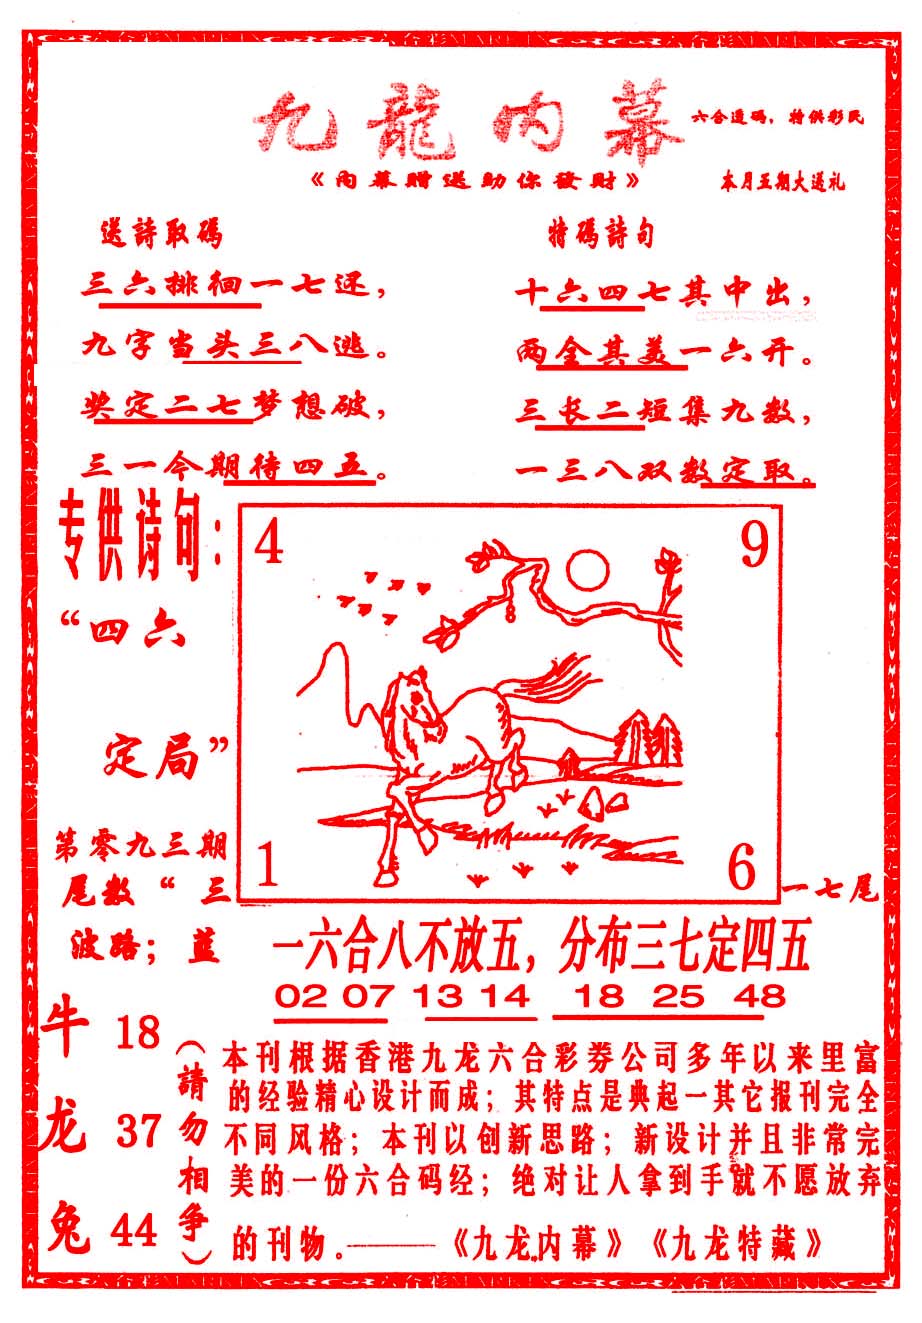 九龍内幕
六合透码，特供彩民
《内幕贈送助你發財》
本月五期大送礼
送詩取碼
三六排徊一七还，
九字当头三八逃。
奖定二七梦想破，
三一今期待四五。
特碼詩句
十六四七其中出，
两全其美一六开。
三长二短集九数，
一三八双数定取。
专供诗句：
“四六
定局”
4
9
1
6
第零九三期
尾数“三
一七尾
波路；蓝
一六合八不放五，分布三七定四五
02 07 13 14 18 25 48
牛 18
龙 37
兔 44
（請勿相争）
本刊根据香港九龙六合彩券公司多年以来里富
的经验精心设计而成；其特点是典起一其它报刊完全
不同风格；本刊以创新思路；新设计并且非常完
美的一份六合码经；绝对让人拿到手就不愿放弃
的刊物。———《九龙内幕》《九龙特藏》